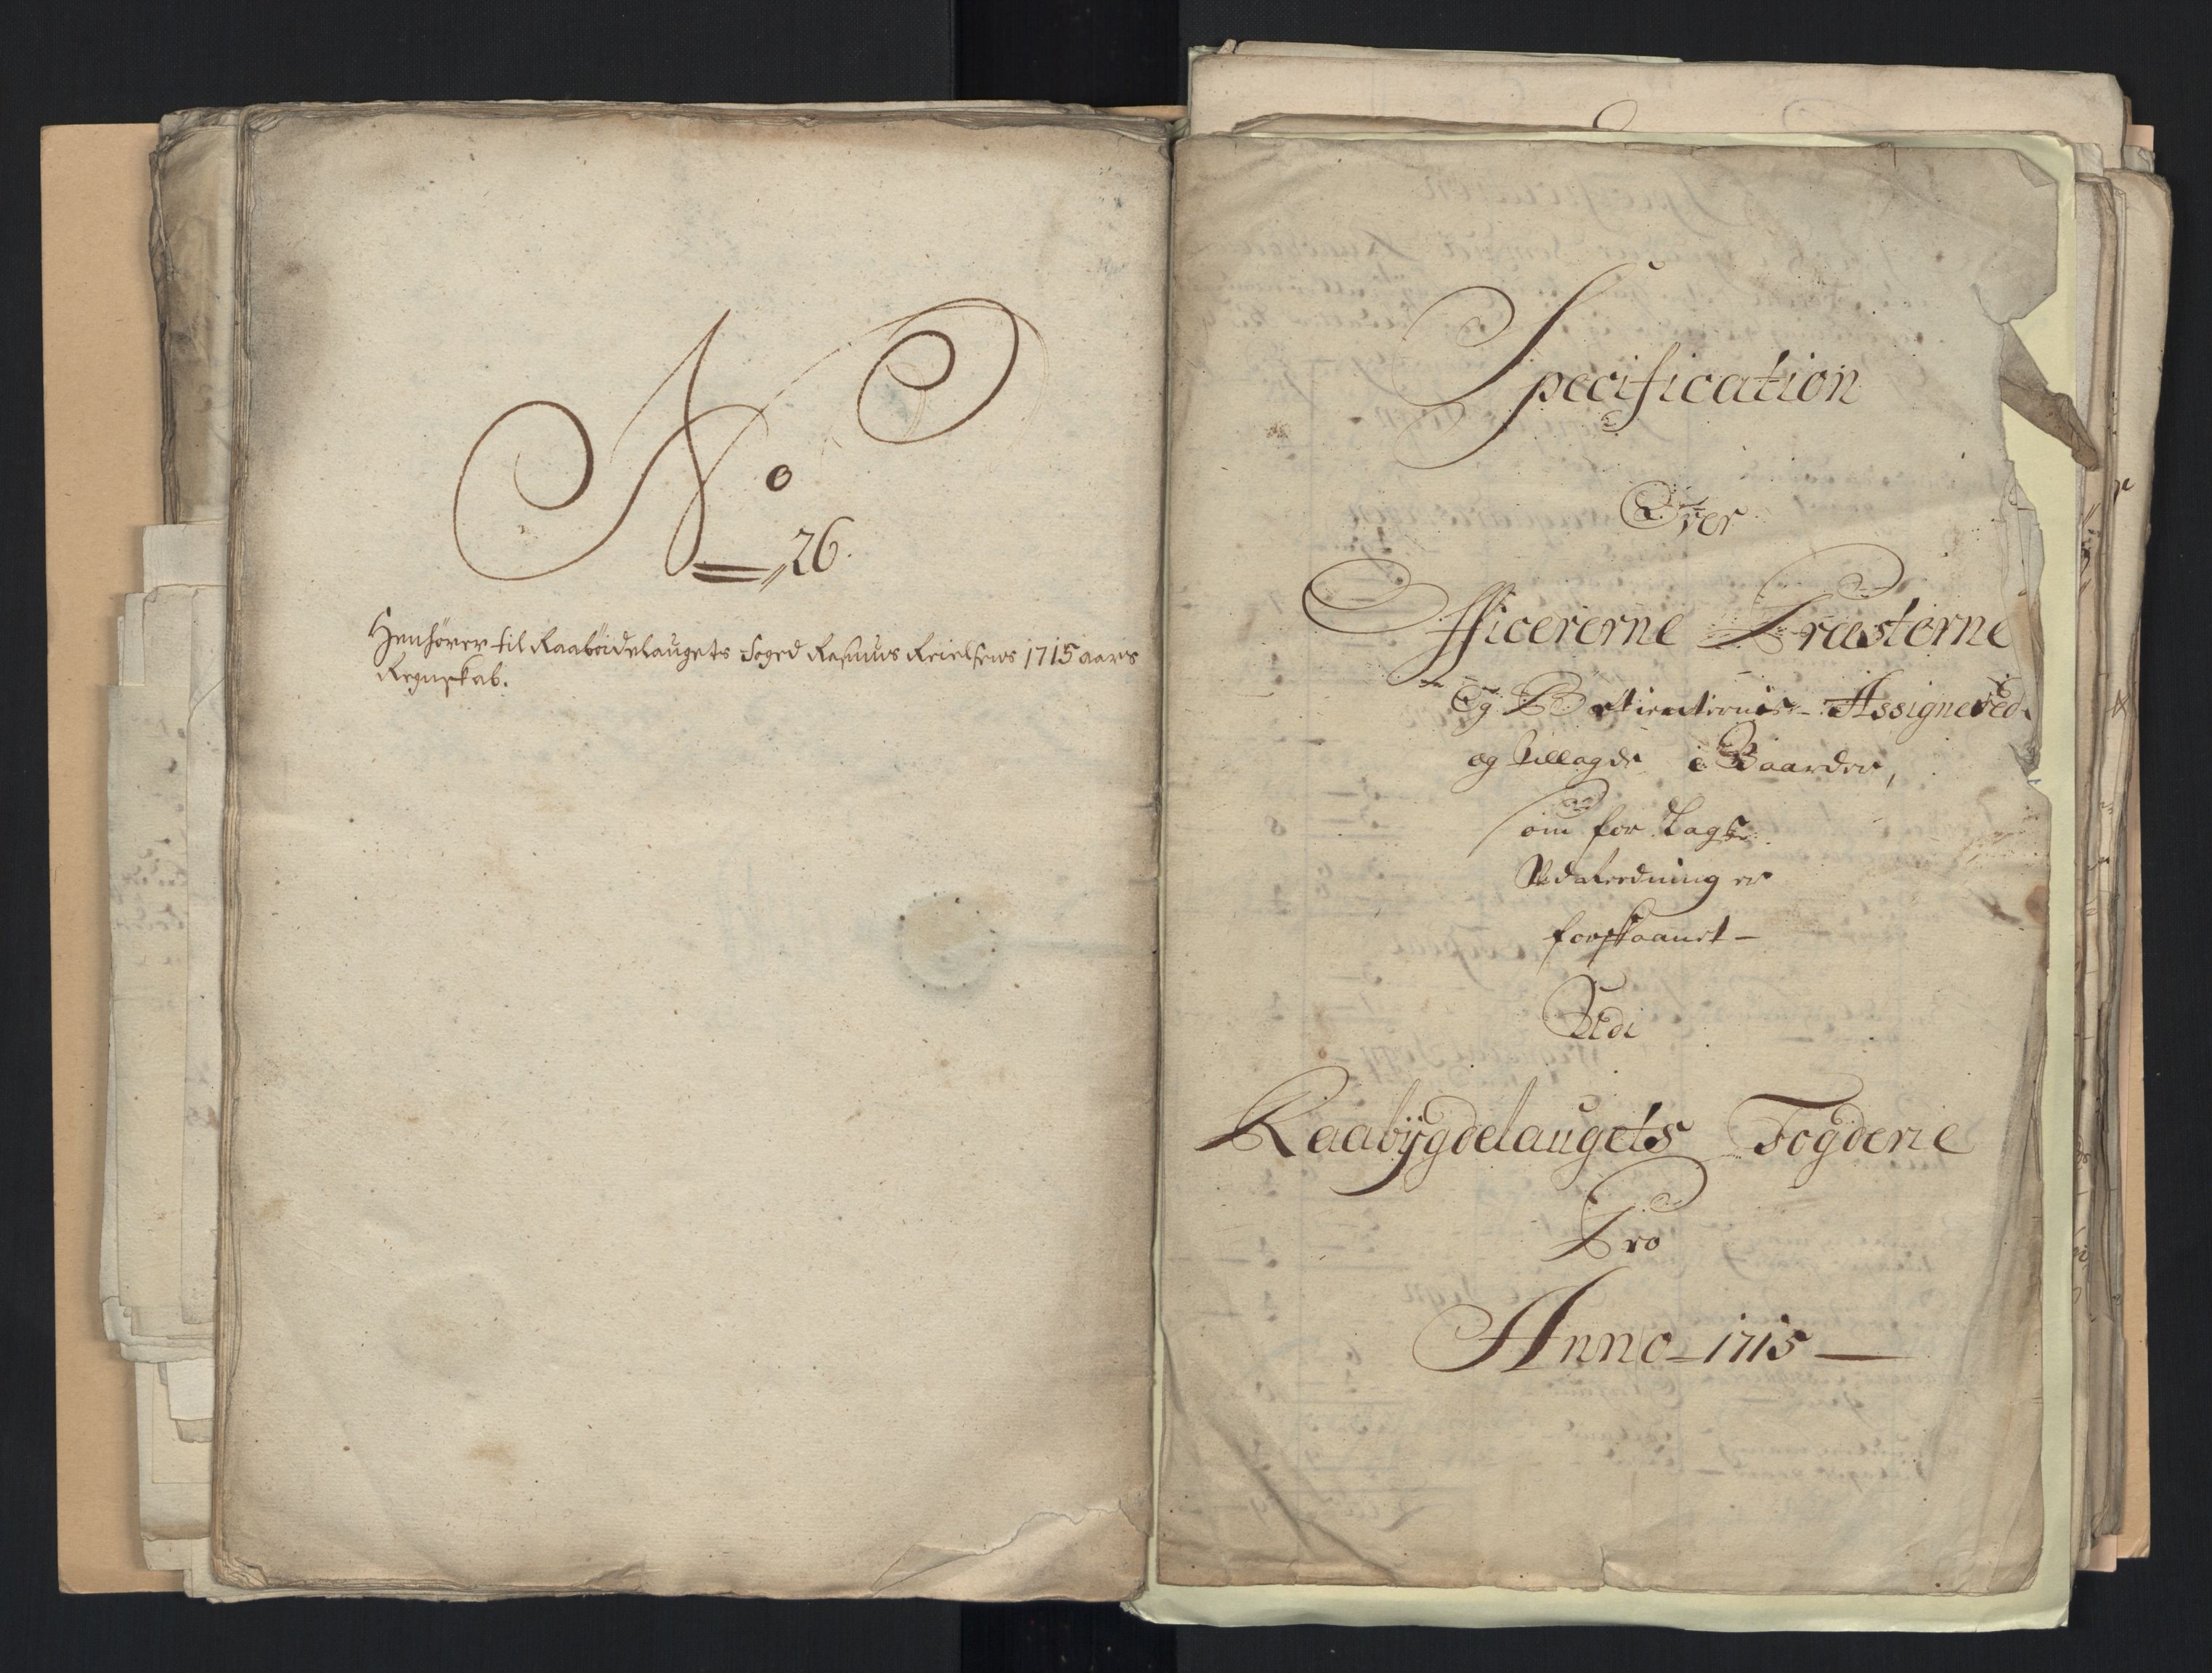 No
26.
Henhörer til Raaböidelaugets Foged Rasmus Reiersens 1715 aars
Regnskab.
Specification
Over
Officererne Præsterne
Og Assignered
og tillagde Gaarder,
som for Lags
Udreedning er
forskaanet –
Udi
Raabÿgdelaugets Fogderie
Pro
Anno – 1715 –